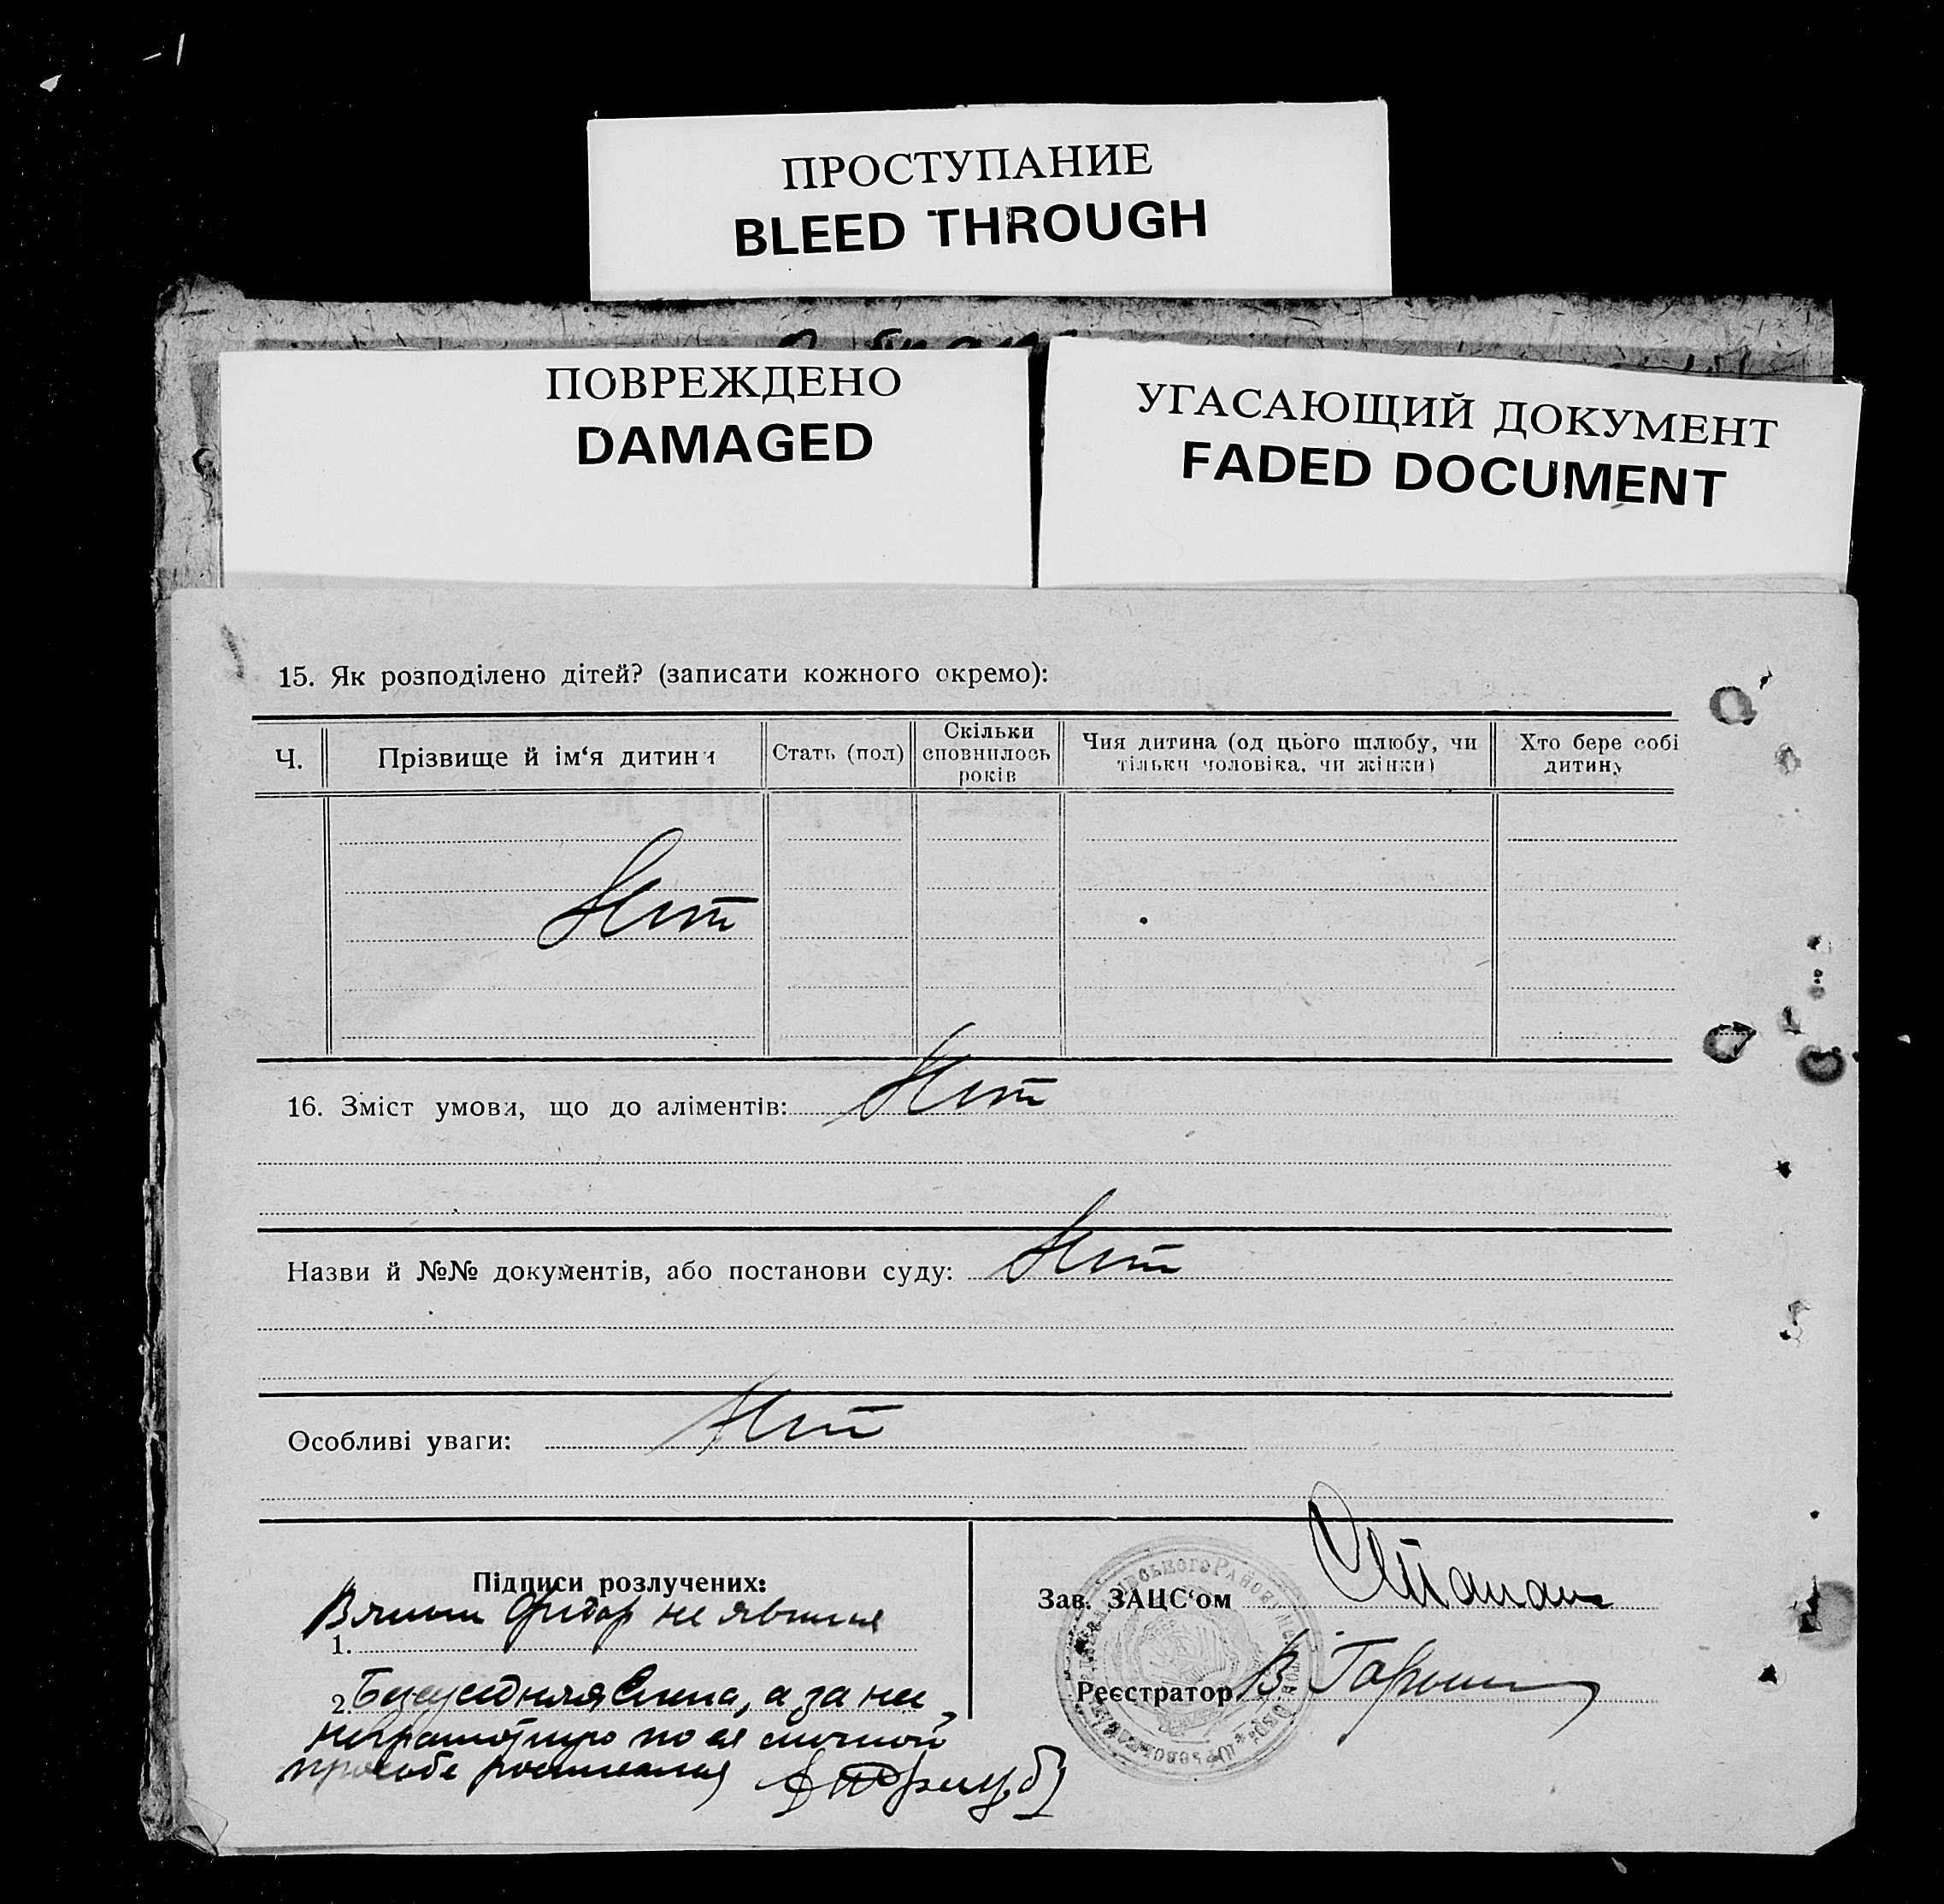 ПРОСТУПАНИЕ
BLEED THROUGH
ПОВРЕЖДЕНО
DAMAGED
УГАСАЮЩИЙ ДОКУМЕНТ
FADED DOCUMENT
15. Як розподілено дітей? (записати кожного окремо):
Ч.
Прізвище й ім‘я дитини
Стать (пол)
Скільки
сповнилось
років
Чия дитина (од цього шлюбу, чи
тільки чоловіка, чи жінки)
Хто бере собі
дитину
Нет
16. Зміст умови, що до аліментів: Нет
Назви й №№ документів, або постанови суду: Нет
Особливі уваги: Нет
Підписи розлучених:
1. Федор не явился
2. Елена, а за нее
неграмотную по ея личной
просьбе расписался
Зав. ЗАЦС‘ом
Реєстратор В.